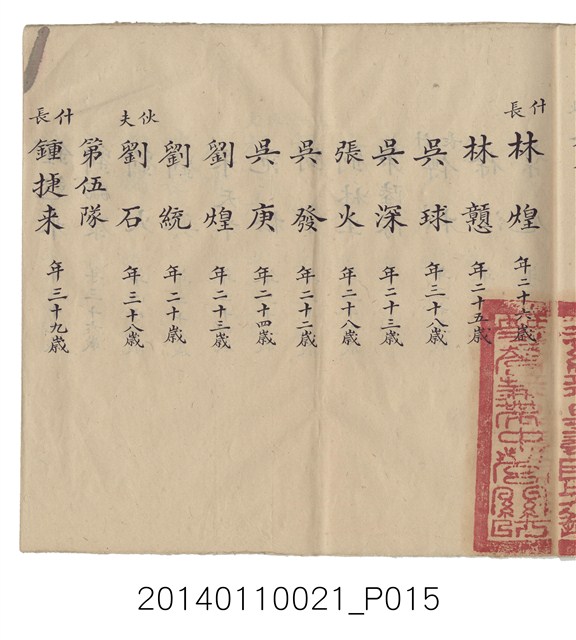 什長
林煌 年二十六歲
林戇 年二十五歲
吳球 年三十八歲
吳深 年二十三歲
張火 年二十八歲
吳發 年二十二歲
吳庚 年二十四歲
劉煌 年二十三歲
劉統 年二十歲
伙夫
劉石 年三十八歲
第伍隊
什長
鍾捷来 年三十九歲
20140110021_P015